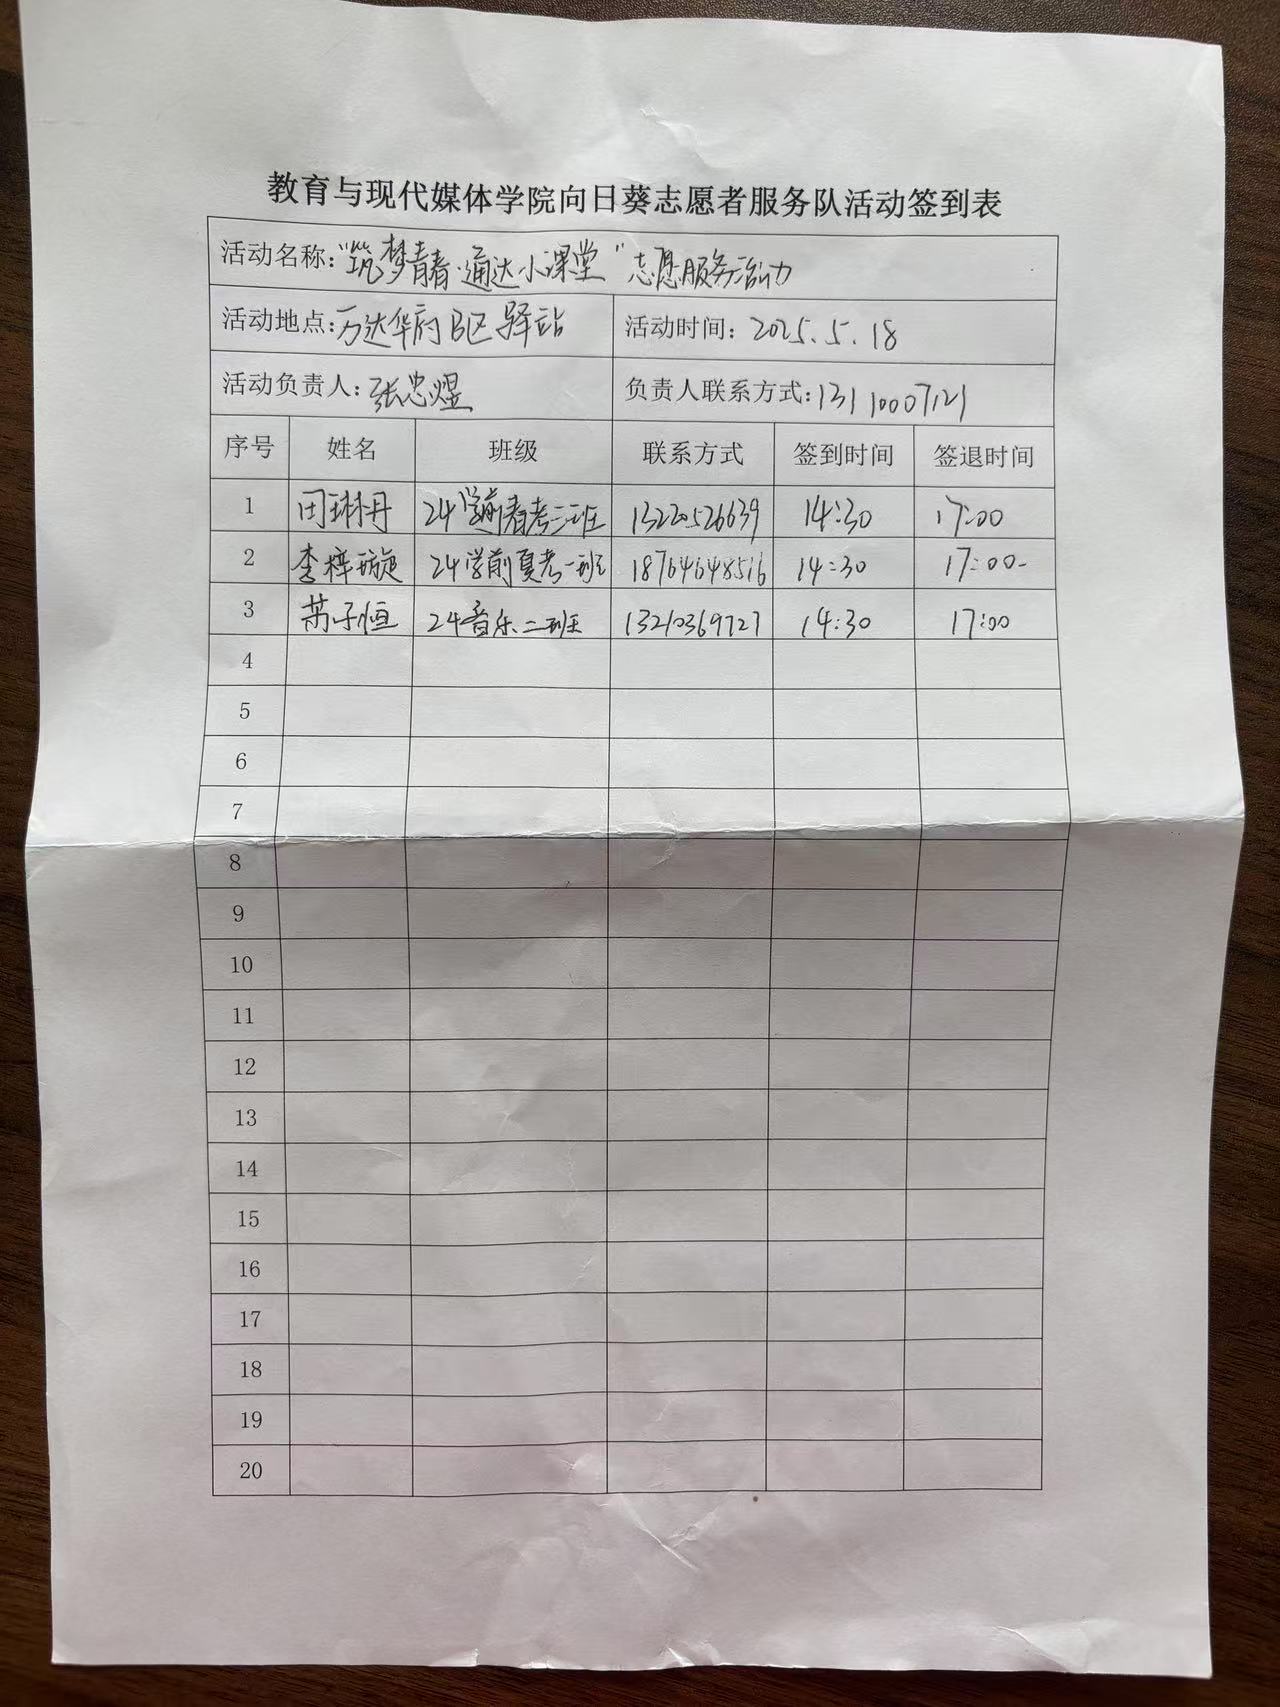 教育与现代媒体学院向日葵志愿者服务队活动签到表
活动名称:"筑梦青春·通达小课堂"志愿服务活动
活动地点:万达华府B区驿站 活动时间: 2025.5.18
活动负责人:张忠煜 负责人联系方式:13110007121
序号 姓名 班级 联系方式 签到时间 签退时间
1 田琳丹 24学前春考三班 13220526639 14:30 17:00
2 李梓璇 24学前夏考一班 18764648516 14:30 17:00
3 子恒 24音乐二班 13210369727 14:30 17:00
4
5
6
7
8
9
10
11
12
13
14
15
16
17
18
19
20